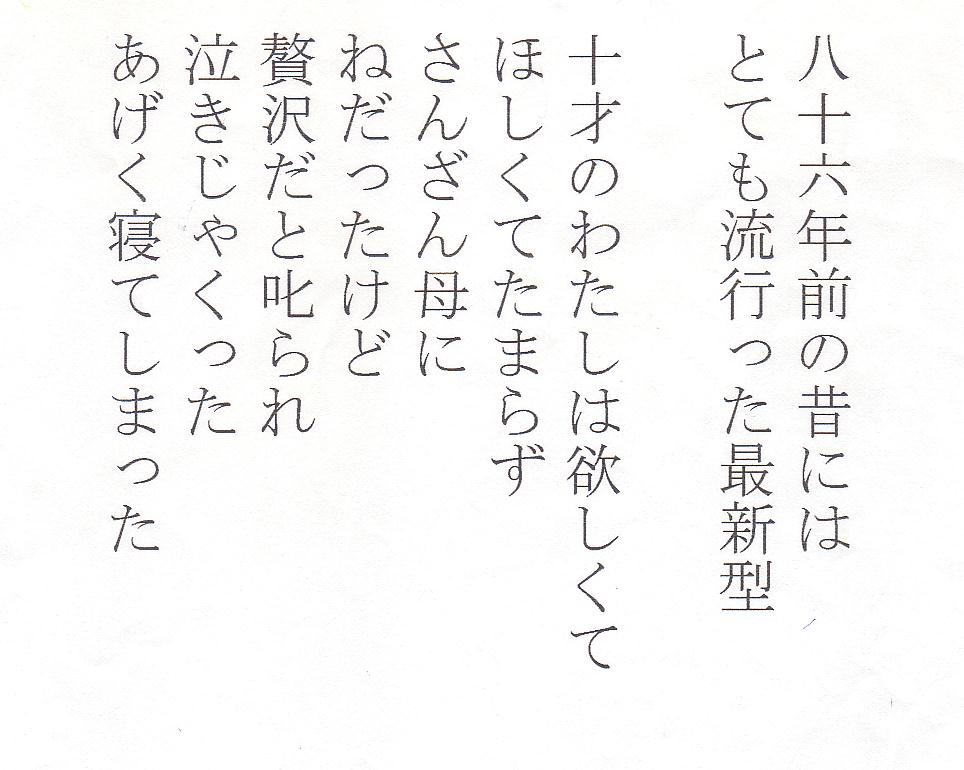 八十六年前の昔には
とても流行った最新型
十才のわたしは欲しくて
ほしくてたまらず
さんざん母に
ねだったけど
贅沢だと叱られ
泣きじゃくった
あげく寝てしまった